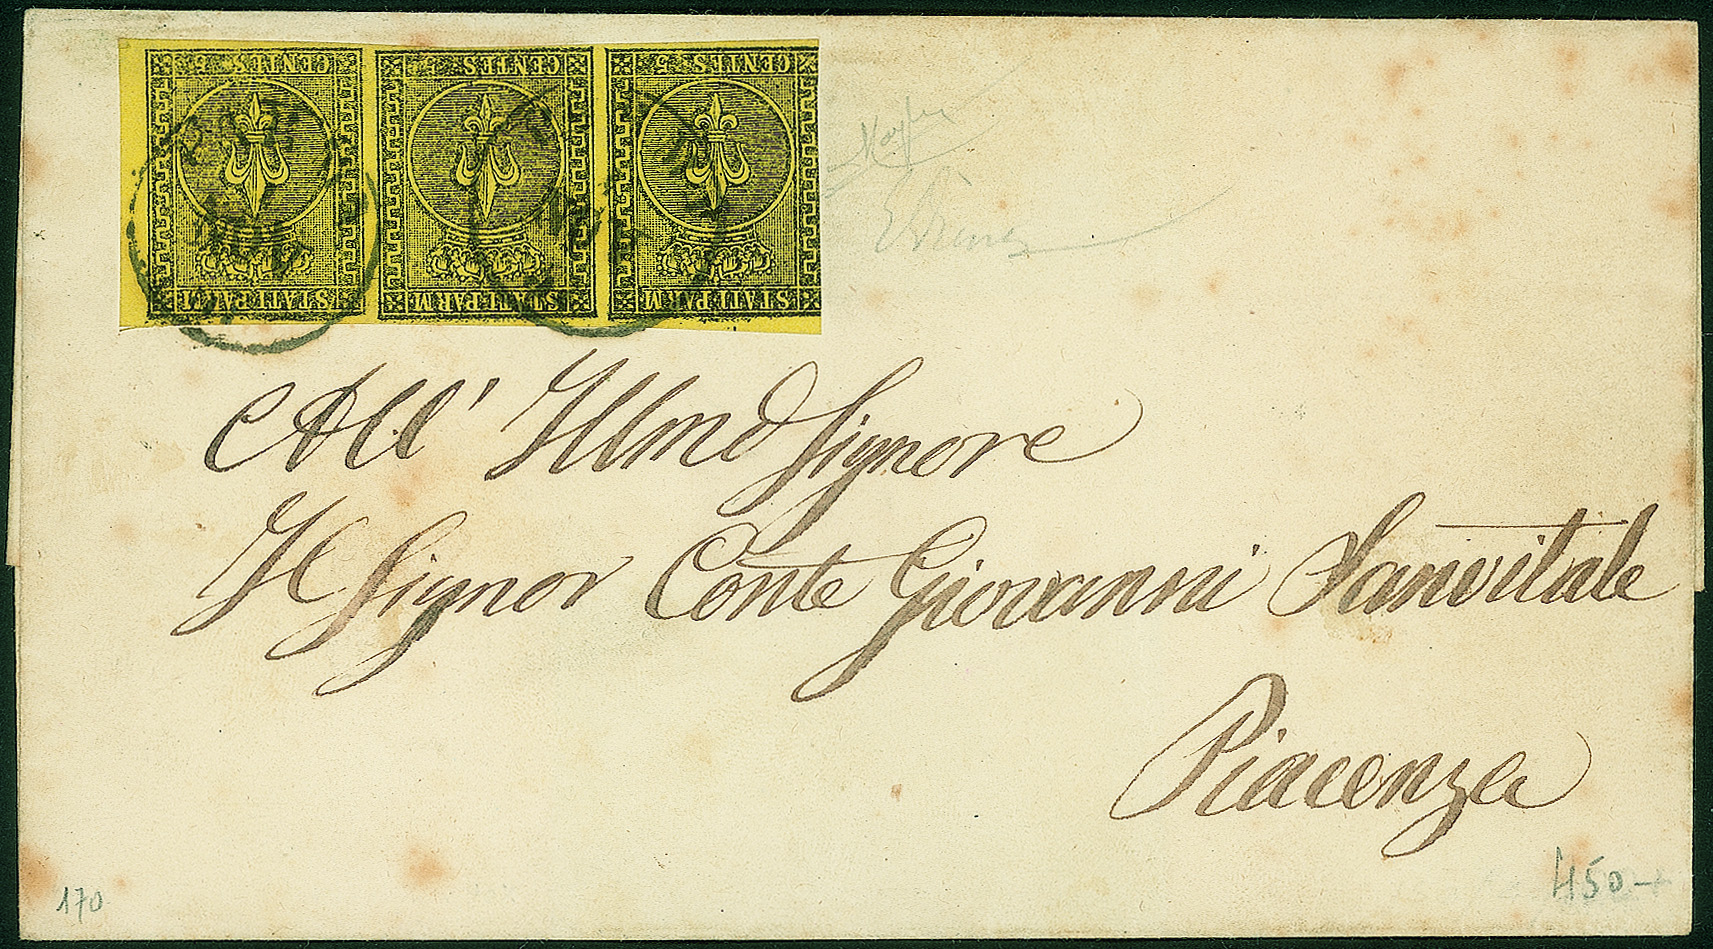 CENTES. 5 CENTES. 5 CENTES. 5
STATI PARM STATI PARM STATI PARM
PAR
All' Illmo Signore
Il Signor Conte Giovanni Sanvitale
Piacenza
170
450-